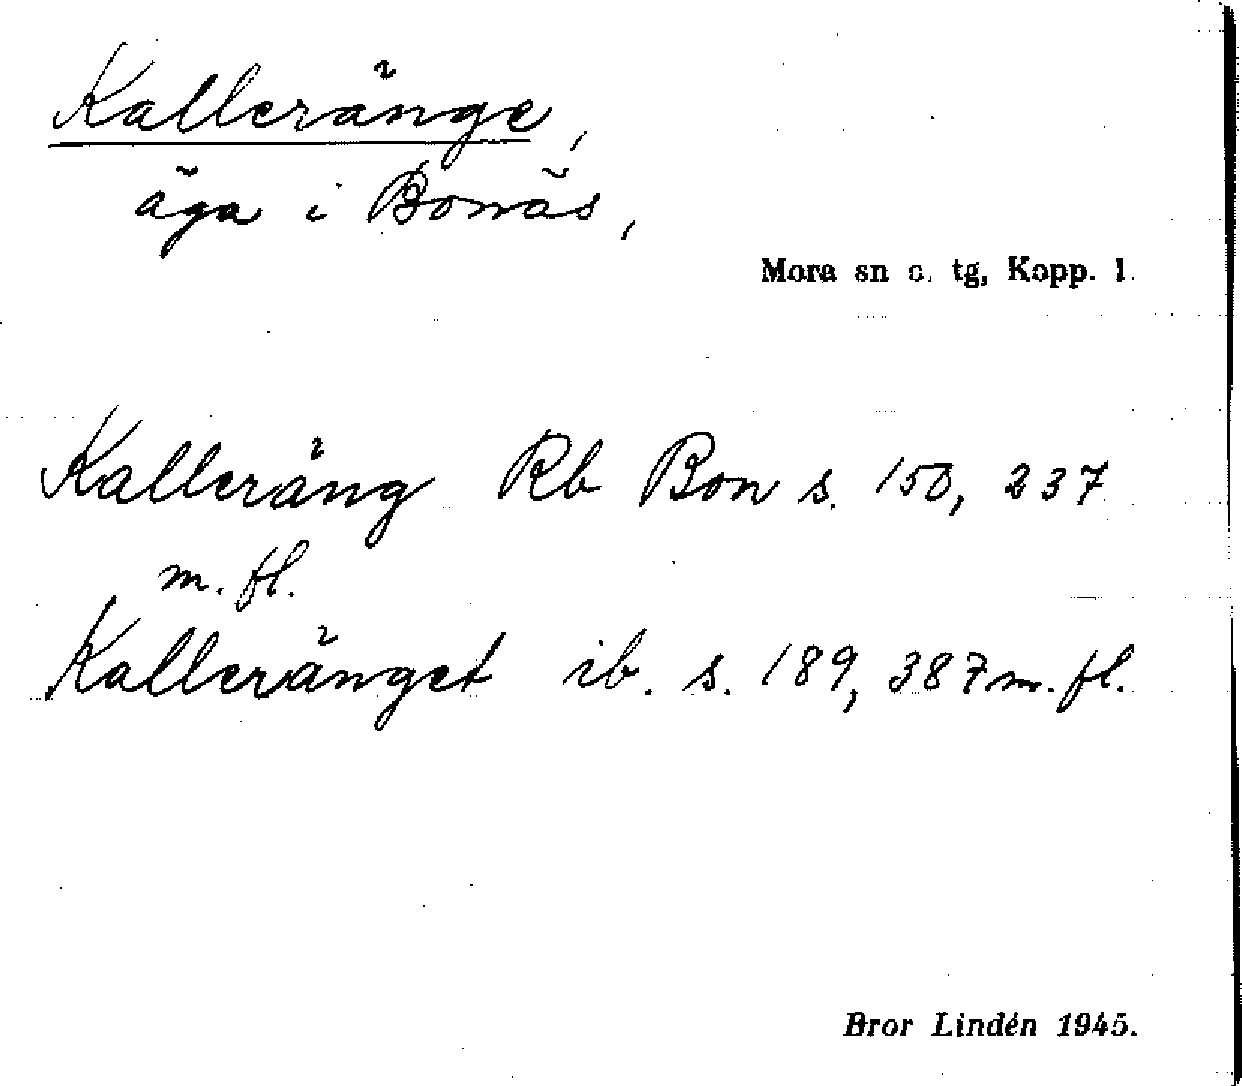 Kalleränge,
äga i Bonäs,
Mora sn o. tg, Kopp. l.
Kalleräng Rb Bon s. 150, 237
m. fl.
Kalleränget ib. s. 189, 387 m. fl.
Bror Lindén 1945.